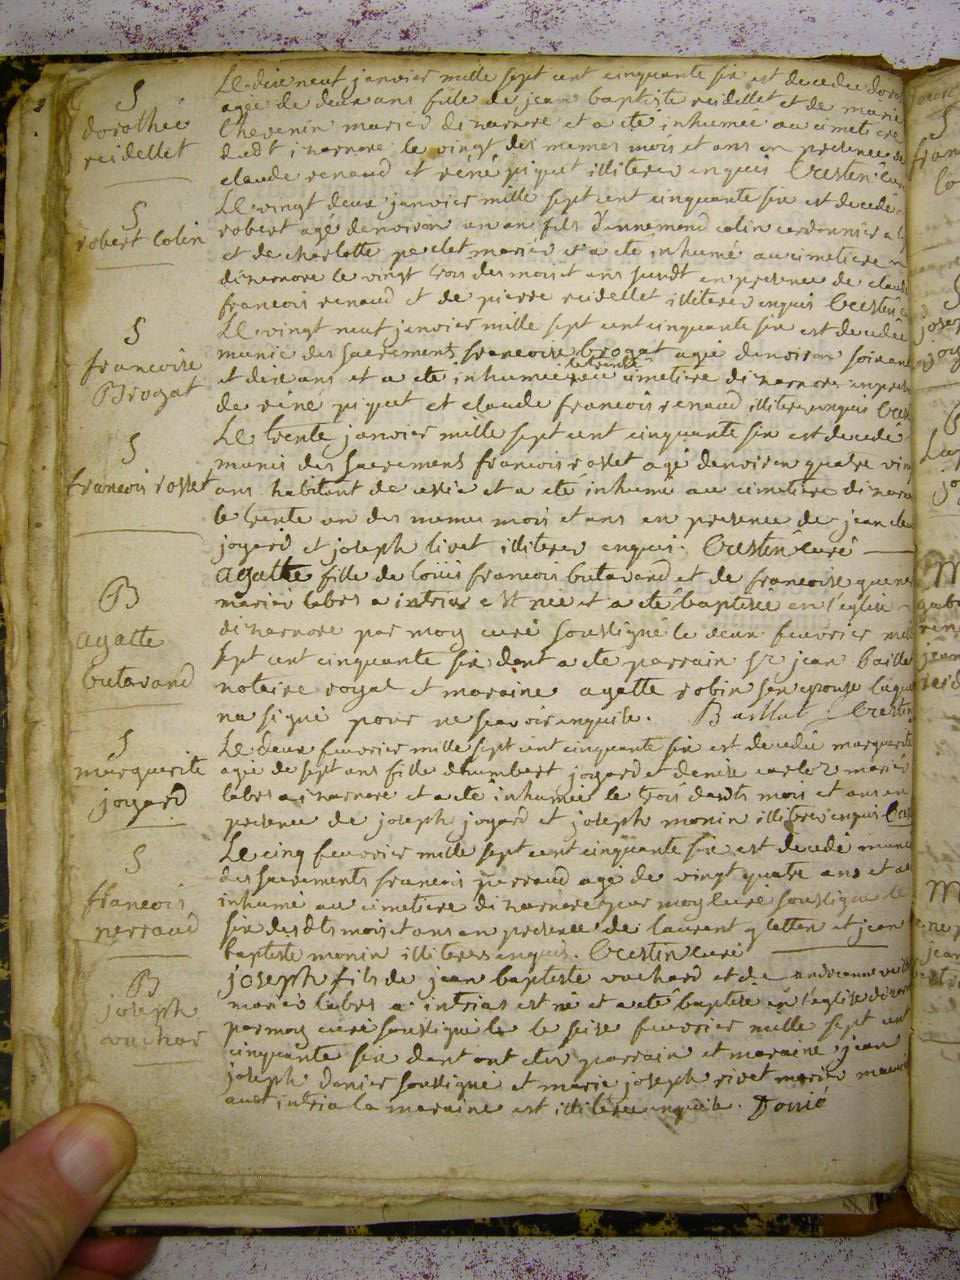 S
dorothée
reidellet
Le dixe neuf janvier mille sept cent cinquante six est decedee doro
agée de deux ans fille de jean baptiste reidellet et de marie
thevenin mariés dizarnore et a eté inhumée au cimetiere
dudt izarnore le vingt des memes mois et ans en presence de
claude renaud et réné piquet illiteres enquis Crestin curé
S
robert Colin
Le vingt deux janvier mille sept cent cinquante six est decedé
robert agé denviron un an fils dennemond colin cordonnier a
et de charlotte peclet mariés et a eté inhumé au cimetiere
dizarnore le vingt trois des mois et ans susdt en presence de claude
francois renaud et de pierre reidellet illiteres enquis Crestin
S
francoise
Brogat
Le vingt neuf janvier mille sept cent cinquante six est decedée
munie des sacrements francoise brogat agée denviron soixante
le trente
et dixe ans et a eté inhumée au cimetiere dizarnore en presence
de réné piquet et claude francois renaud illiteres enquis Crest
S
francois rosset
Le trente janvier mille sept cent cinquante six est decedé
munis des sacremens francois rosset agé denviron quatre vingt
ans habitent de et a eté inhumé au cimetiere dizarnore
le trente un des memes mois et ans en presence de jean clau
joyard et joseph livet illiteres enquis. Crestin curé
B
agatte
butavand
agatte fille de loüis francois butavand et de francoise
mariés labrs a intrias est née et a eté baptisée en l'eglise
dizarnore par moy curé soussigné le deux feuvrier mil
sept cent cinquante six dont a eté parrain sr jean baillat
notaire royal et maraine agatte robin son epouse laque
na signé pour ne scavoir enquise. Baillat Crestin
S
marguerite
joyard
Le deux feuvrier mille sept cent cinquante six est decedée marguerite
agée de sept ans fille dhumbert joyard et denise mariés
labrs a izarnore et a eté inhumée le trois desdts mois et ans en
presence de joseph joyard et joseph monin illiteres enquis Cres
S
francois
perraud
Le cinq feuvrier mille sept cent cinquante six est decedé muni
des sacrements francois perraud agé de vingt quatre ans et a eté
inhumé au cimetiere dizarnore par moy curé soussigné le
six desdts mois et ans en presence de laurent gletton et jean
baptiste monin illiteres enquis. Crestin curé
B
joseph
vuchard
joseph fils de jean baptiste vuchard et de andreanne
mariés labrs a intrias est né et a eté baptisé en l'eglise dizarnore
par moy curé soussigné le seise feuvrier mille sept cent
cinquante six dont ont eté parrain et maraine jean
joseph donier soussigné et marie joseph rivet
audt intria la maraine est illiterée enquise. Donié